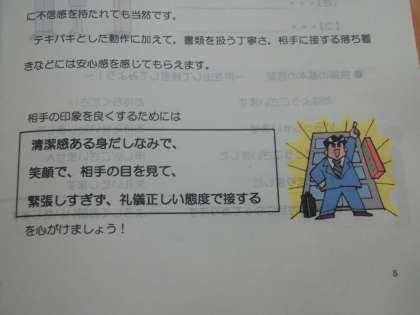 に不信感を持たれても当然です。
テキパキとした動作に加えて，書類を扱う丁寧さ，相手に接する落ち着
きなどには安心感を感じてもらえます。
相手の印象を良くするためには
清潔感ある身だしなみで、
笑顔で、相手の目を見て、
緊張しすぎず、礼儀正しい態度で接する
を心がけましょう！
5